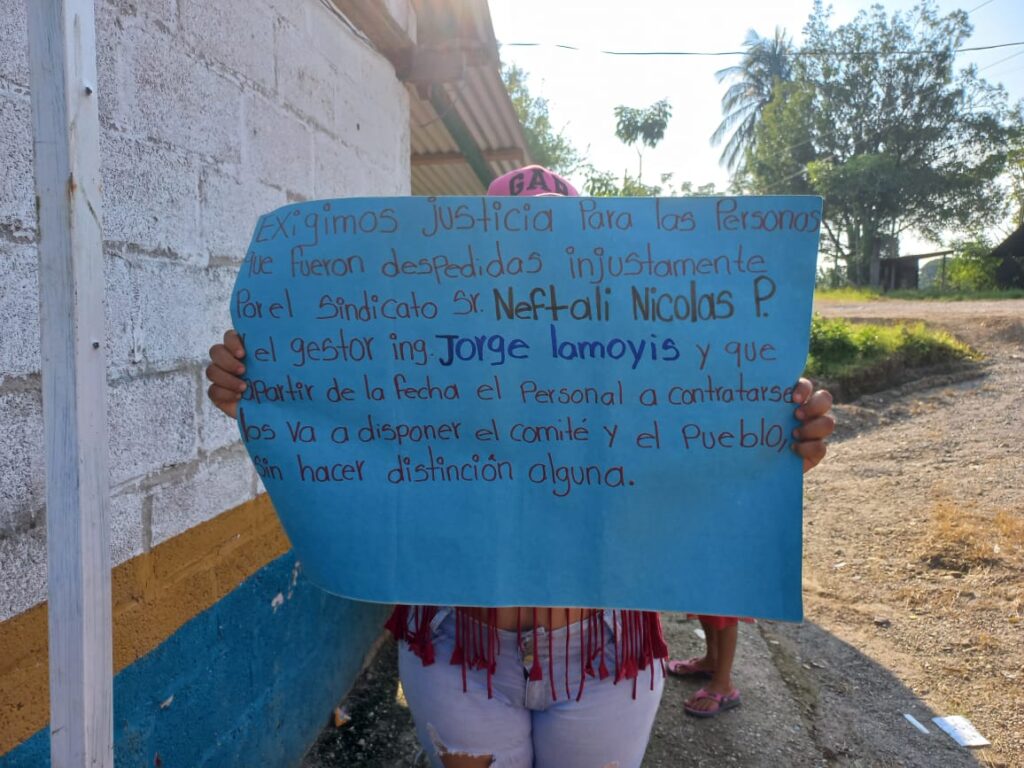 GAP
Exigimos justicia Para las Personas
que fueron despedidas injustamente
Por el sindicato Sr. Neftali Nicolas P.
Y el gestor ing. Jorge lamoyis y que
apartir de la fecha el Personal a contratarse
los va a disponer el comité y el Pueblo,
sin hacer distinción alguna.